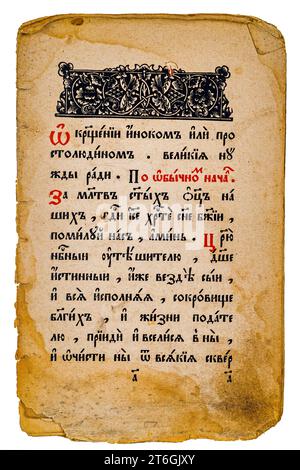 Ѡ крщ҃енїи и҆нокомъ и҆лѝ про
столюдиномъ . великїѧ нꙋ
жды ради . По ѡ҆бычномⷹ нача́ⷧ
За мл҃твъ ст҃ыхъ ѻ҆ц҃ъ на
шихъ , гд҇и і҆се хр҇те сн҃е бж҃їи ,
помилꙋй насъ , а҆минь . Цр҃ю
нб҇ныи ᲂу҆тѣ́шителю , дш҃е
и҆стинныи , и҆́же вездѣ̀ сыи ,
и҆ всѧ̀ и҆сполнѧѧ , сокровище
бл҃гихъ , и҆ жизни подате
лю , прїидѝ и҆ вселисѧ в ны̀ ,
и҆ ѡ҆чисти ны ѿ всѧкїѧ сквер
а҃ а҃
alamy
Image ID: 2T6GJXY
www.alamy.com